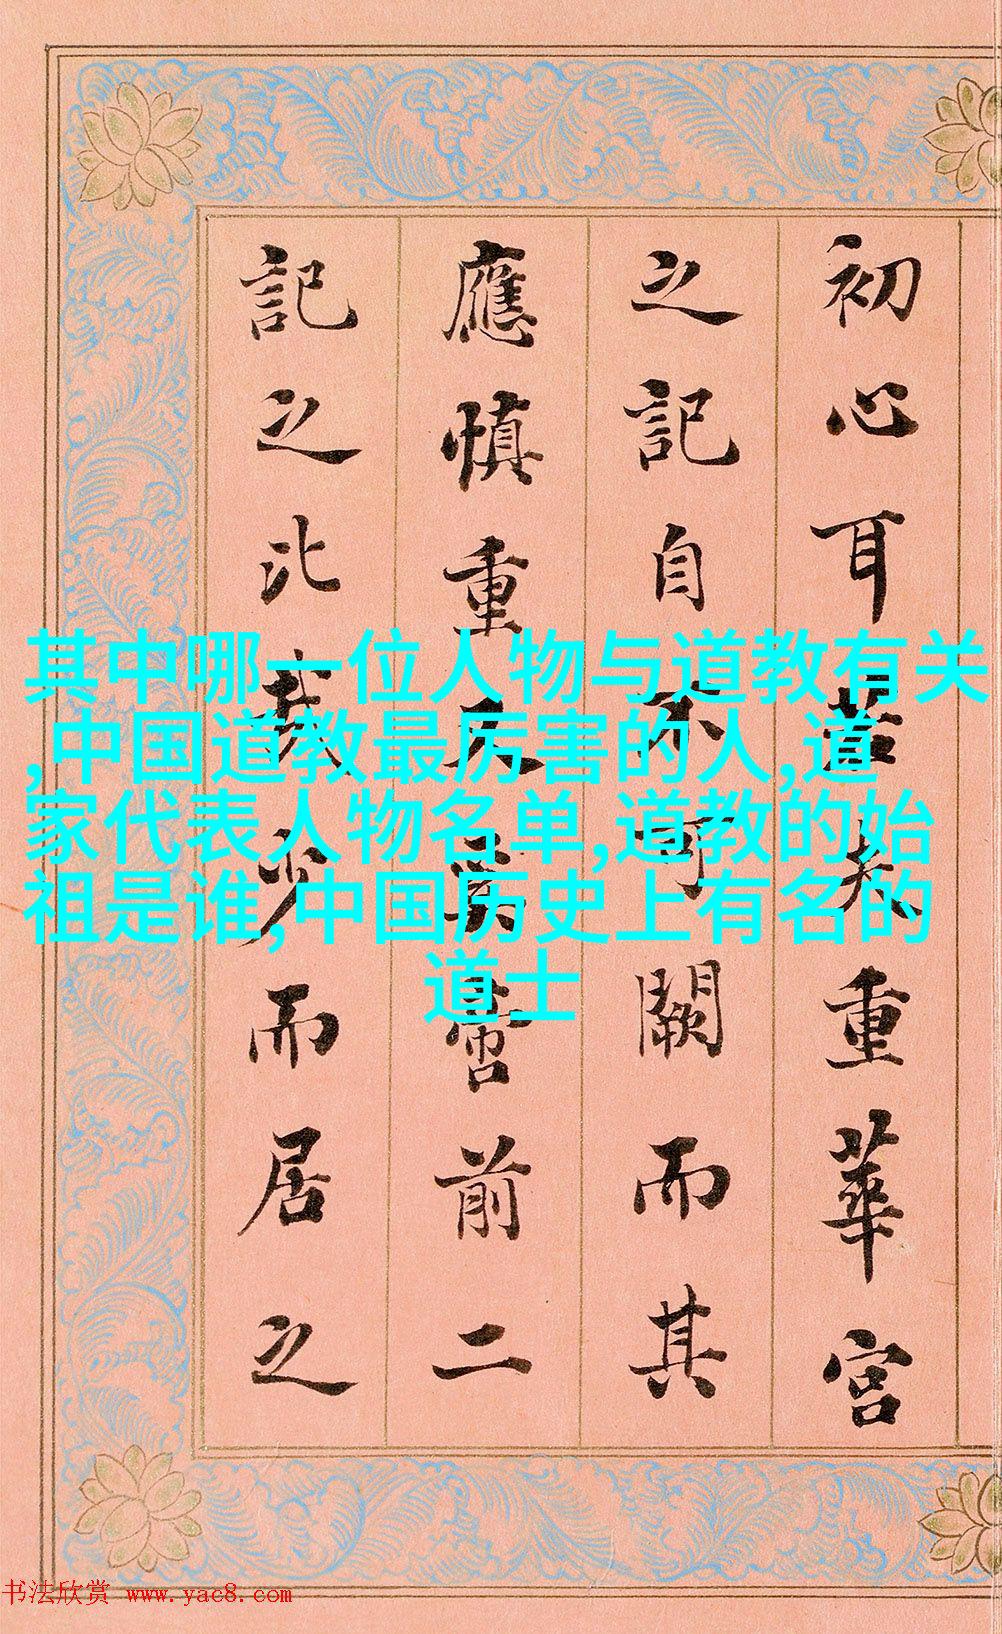 初心耳若夫重華宮
之記自不可闕而其
應慎重又奚啻前二
記之比哉少而居之
其中哪一位人物与道教有关
,中国道教最厉害的人,道
家代表人物名单,道教的始
祖是谁,中国历史上有名的
道士
书法欣赏 www.yac8.com